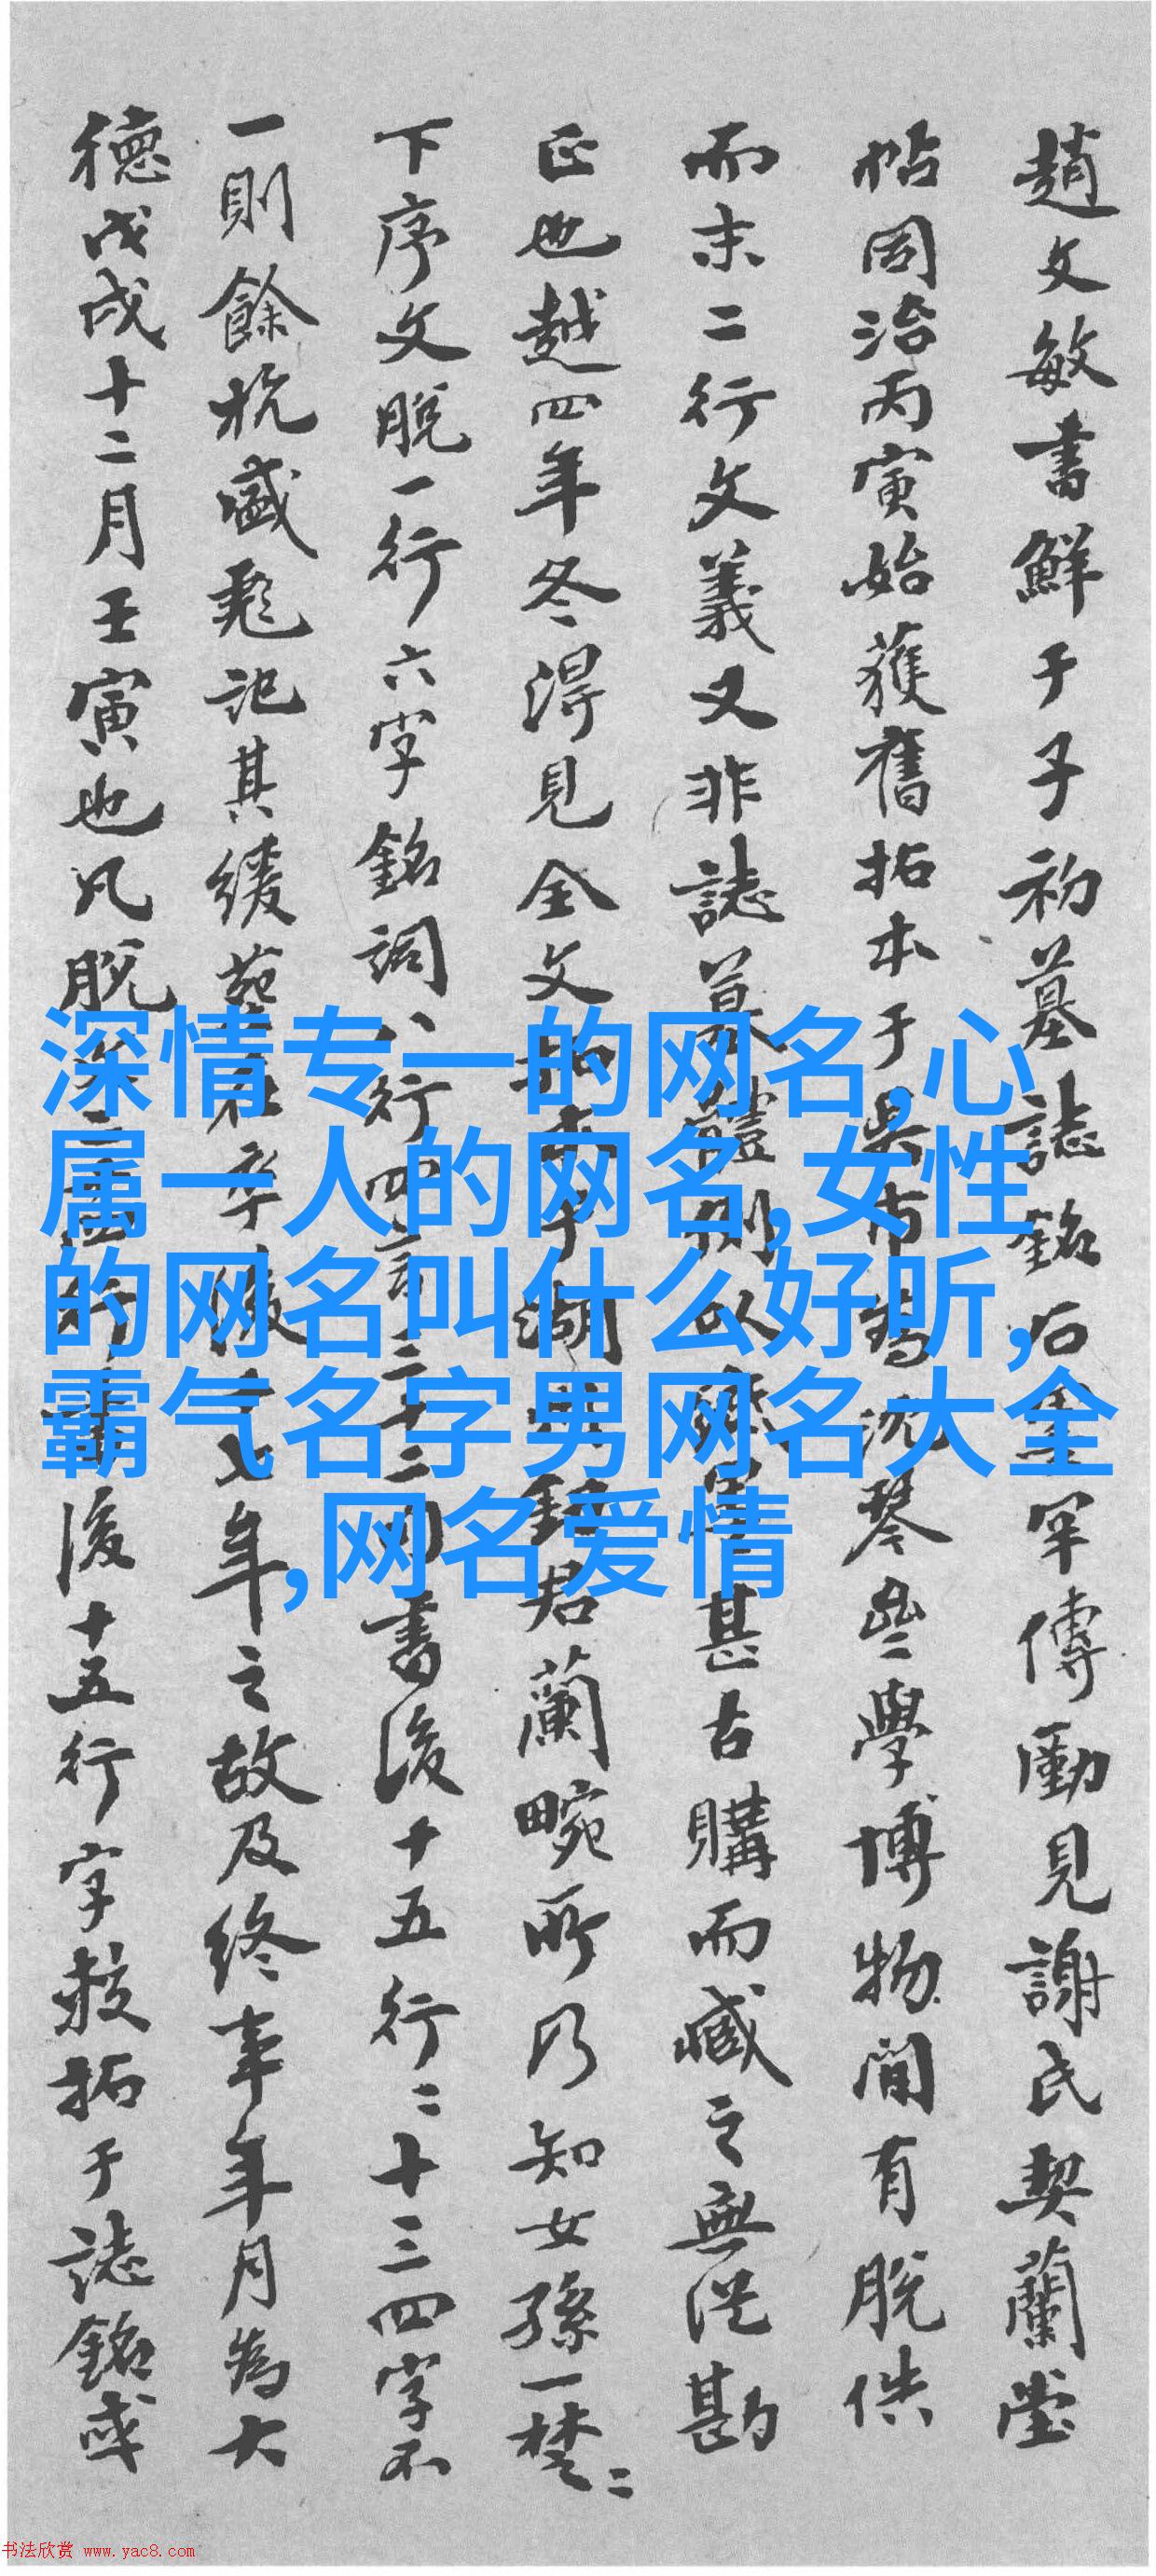 趙文敏書鮮于子初墓誌銘石
罕傳勔見謝氏契蘭堂
帖同治丙寅始獲舊拓本于吳市
沈琴叄學博物閒有脫佚
而末二行文義又非誌墓體
甚古購而藏之無從勘
正也越四年冬得見全文拓本于湖
君蘭畹所乃知女孫一椘二
下序文脫一行六字銘詞八行四言三十二句
書後十五行二十三四字不
一則餘杭盛彪記其緩葬
七年之故及終事年月為大
德戊戌十二月壬寅也凡脫
後十五行字数拓于誌銘或
深情专一的网名,心
属一人的网名,女性
的网名叫什么好听,
霸气名字男网名大全
,网名爱情
书法欣赏 www.yac8.com